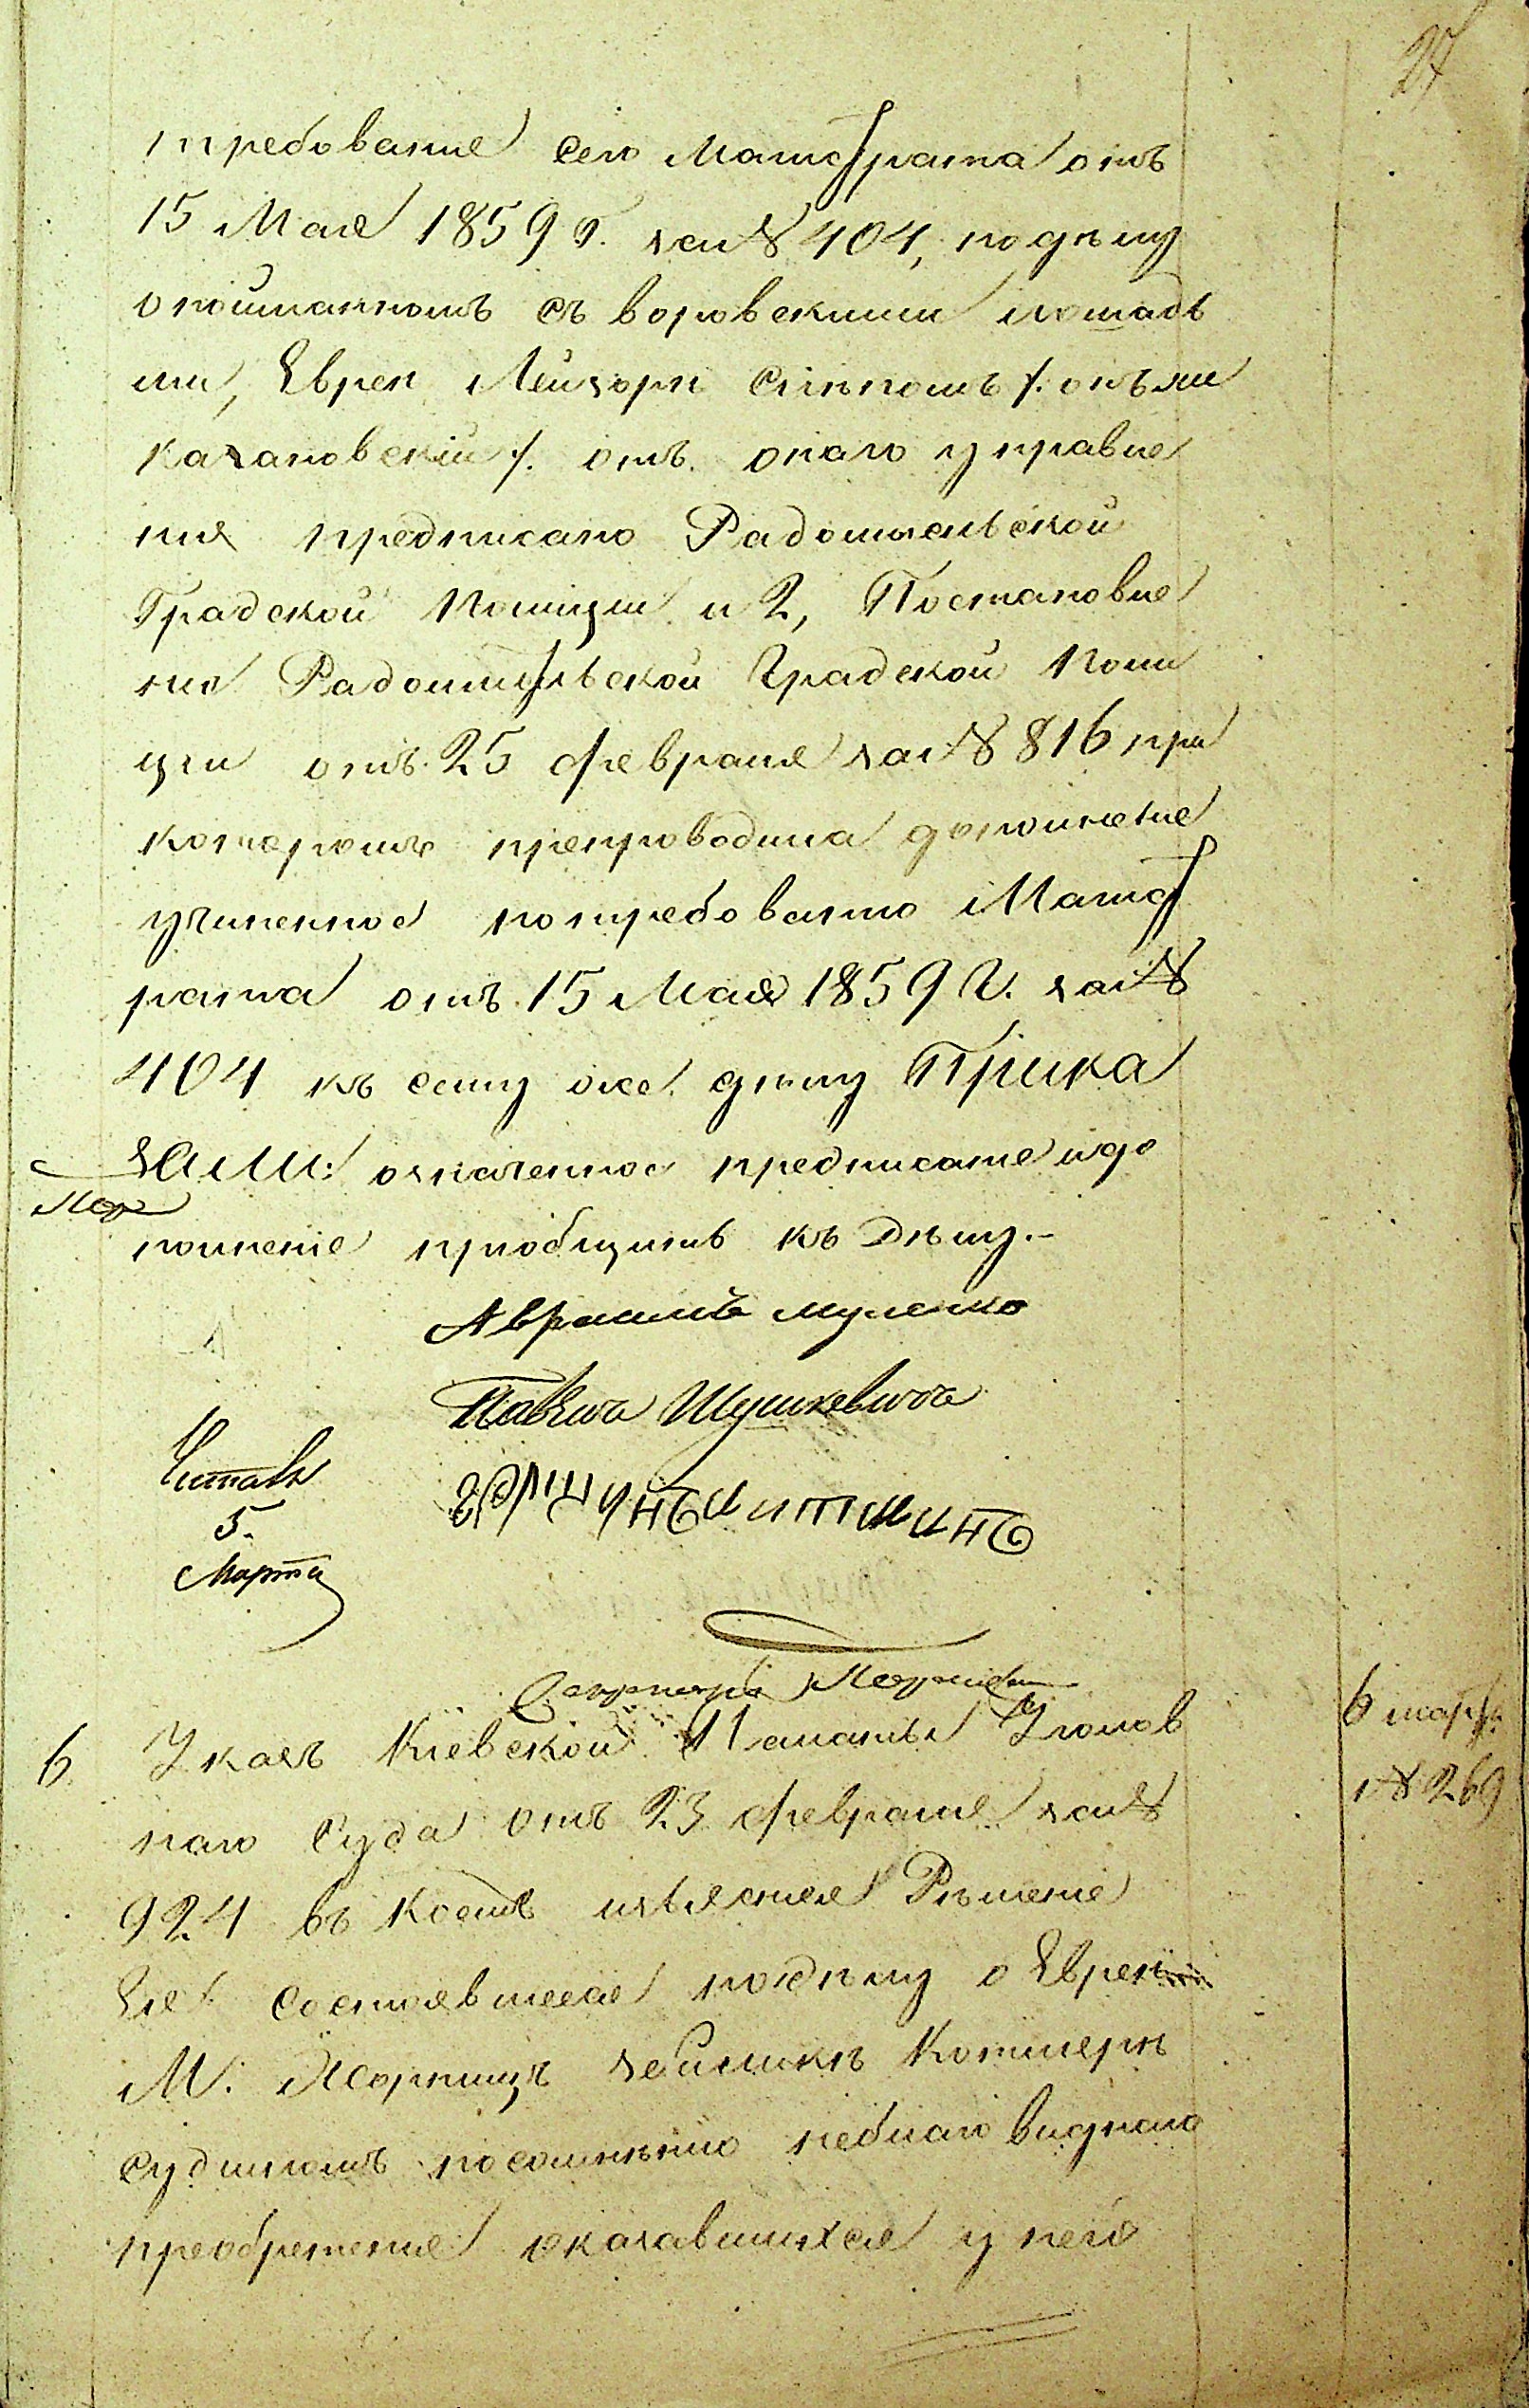 27
требованіе сего Магистрата отъ
15 Мая 1859 г. за № 404, по дѣлу
о пойманномъ съ воровскими лошадь
ми, Евреѣ Лейзорѣ Слѣпомъ /: онъ же
Казановскій /: отъ онаго управле
нія предписано Радомысльской
Градской Полиціи и 2, Постановле
ніе Радомысльской Градской Поли
ціи отъ 25 февраля за № 816 при
которомъ препроводила дополненіе
учиненное по требованію Магист
рата отъ 15 Мая 1859 г. за №
404 къ сему же дѣлу Прика
зали: означенное предписаніе и до
полненіе пріобщить къ дѣлу.-
Аврамъ
Павелъ Шушкевичъ
Читалъ
5.
Марта
Секретарь
6 марта
№ 269
6. Указъ Кіевской Палаты Уголов
наго Суда отъ 23 февраля за №
924 въ коемъ изъяснея Рѣшеніе
Ея состоявшееся по дѣлу о Евреѣ
М. Хорницъ Зейликѣ Котлерѣ
судимомъ по сомнѣнію неблаговиднаго
преобретенія оказавшихся у него